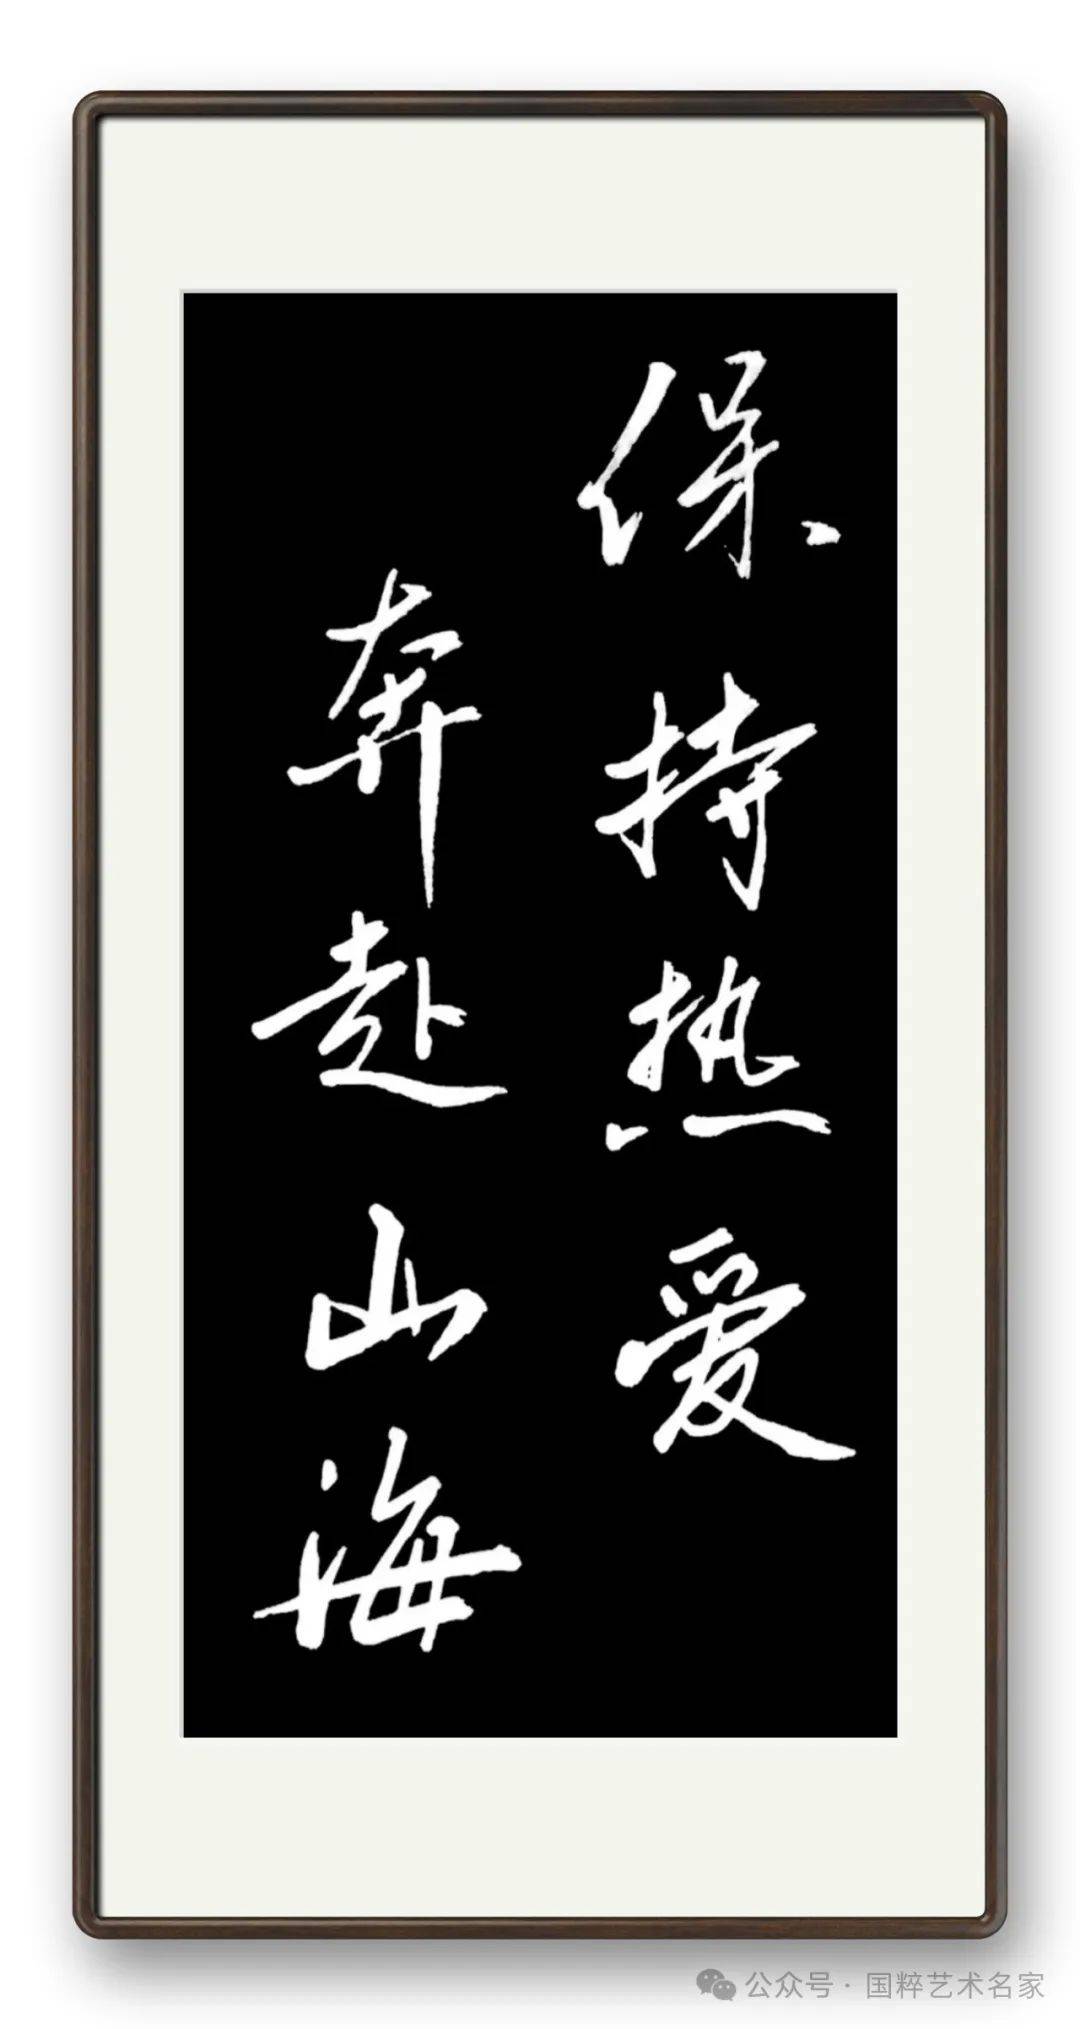 保持热爱
奔赴山海
公众号·国粹艺术名家